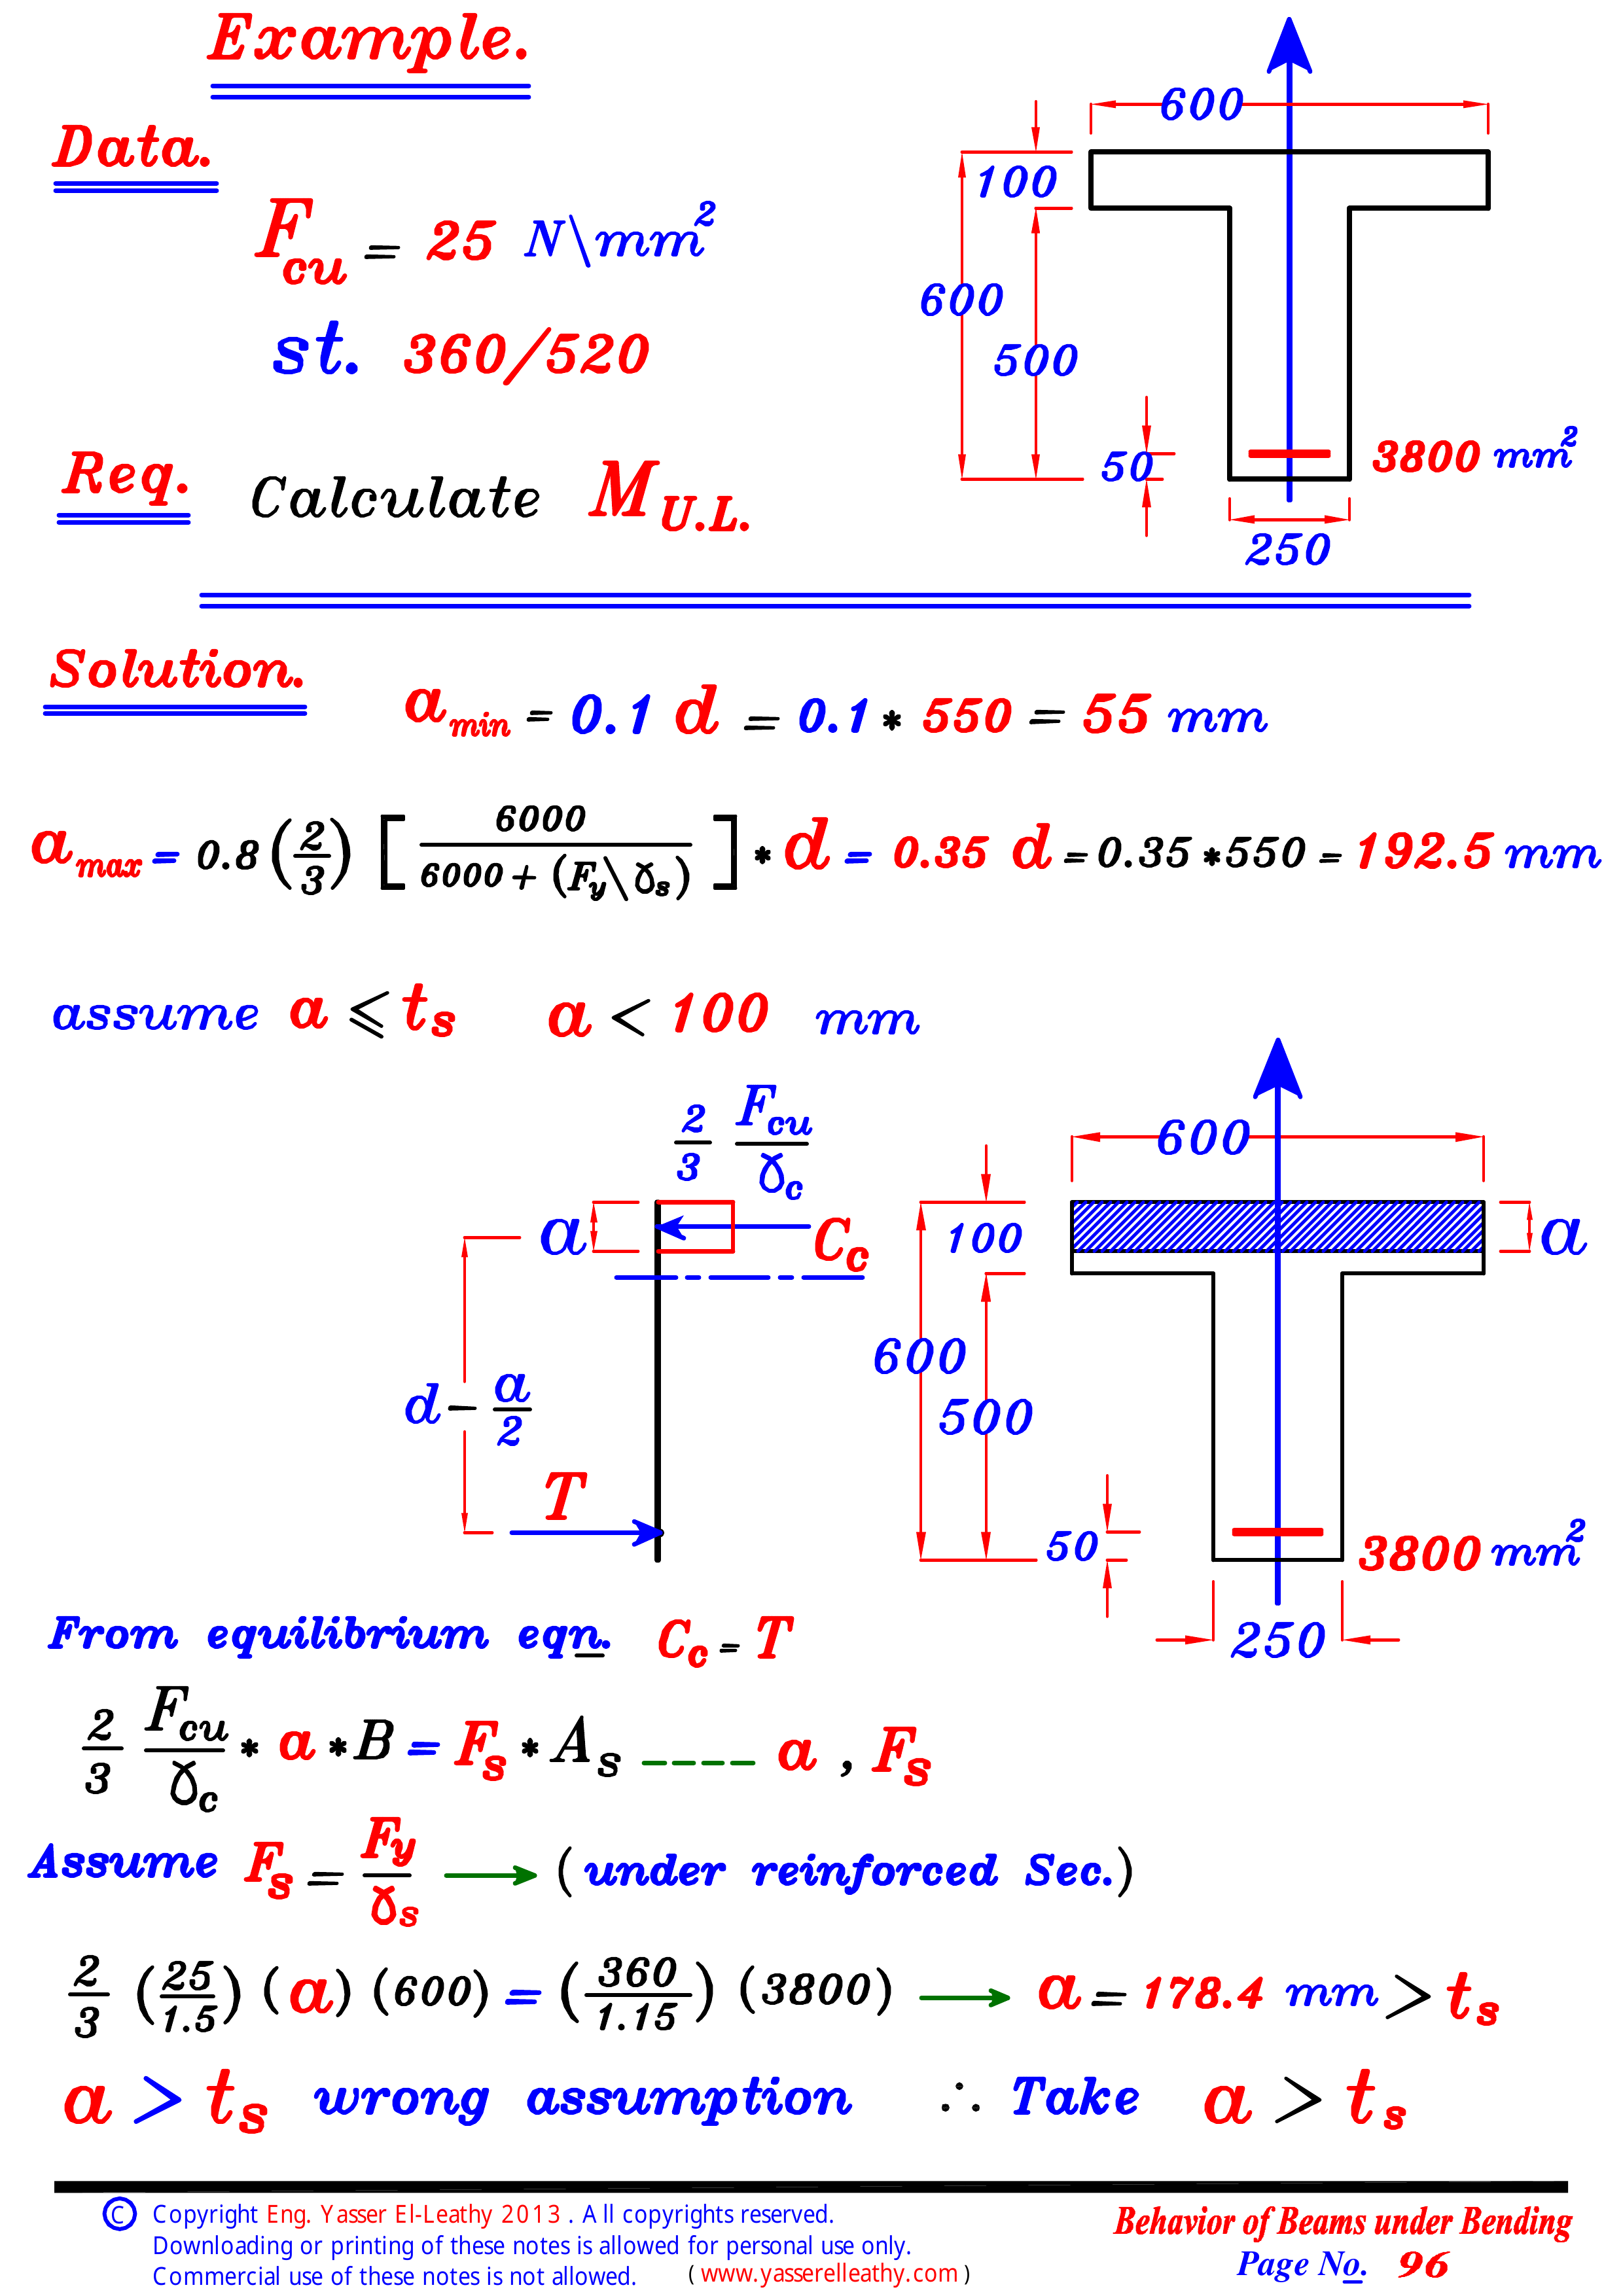 Example.
600
Data.
100
F_cu = 25 N\mm²
600
st. 360/520
500
50
3800 mm²
Req. Calculate M_U.L.
250
Solution.
a_min = 0.1 d = 0.1 * 550 = 55 mm
a_max = 0.8 (2/3) [ 6000 / 6000 + (F_y\γ_s) ] * d = 0.35 d = 0.35 * 550 = 192.5 mm
assume a ⩽ t_s a < 100 mm
2/3 F_cu/γ_c
600
a
C_c
100
a
600
d - a/2
500
T
50
3800 mm²
250
From equilibrium eqn. C_c = T
2/3 F_cu/γ_c * a * B = F_s * A_s ---- a , F_s
Assume F_s = F_y/γ_s → (under reinforced Sec.)
2/3 (25/1.5) (a) (600) = (360/1.15) (3800) → a = 178.4 mm > t_s
a > t_s wrong assumption ∴ Take a > t_s
© Copyright Eng. Yasser El-Leathy 2013 . All copyrights reserved.
Downloading or printing of these notes is allowed for personal use only.
Commercial use of these notes is not allowed. ( www.yasserelleathy.com )
Behavior of Beams under Bending
Page No. 96